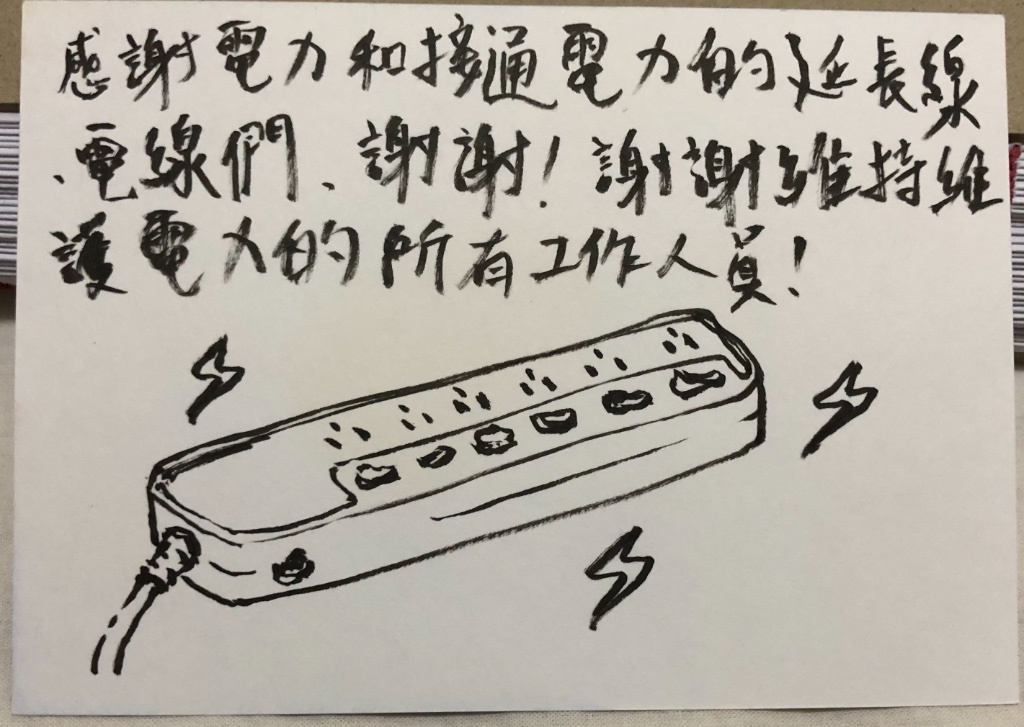 感謝電力和接通電力的延長線
、電線們、謝謝！謝謝維持維
護電力的所有工作人員！